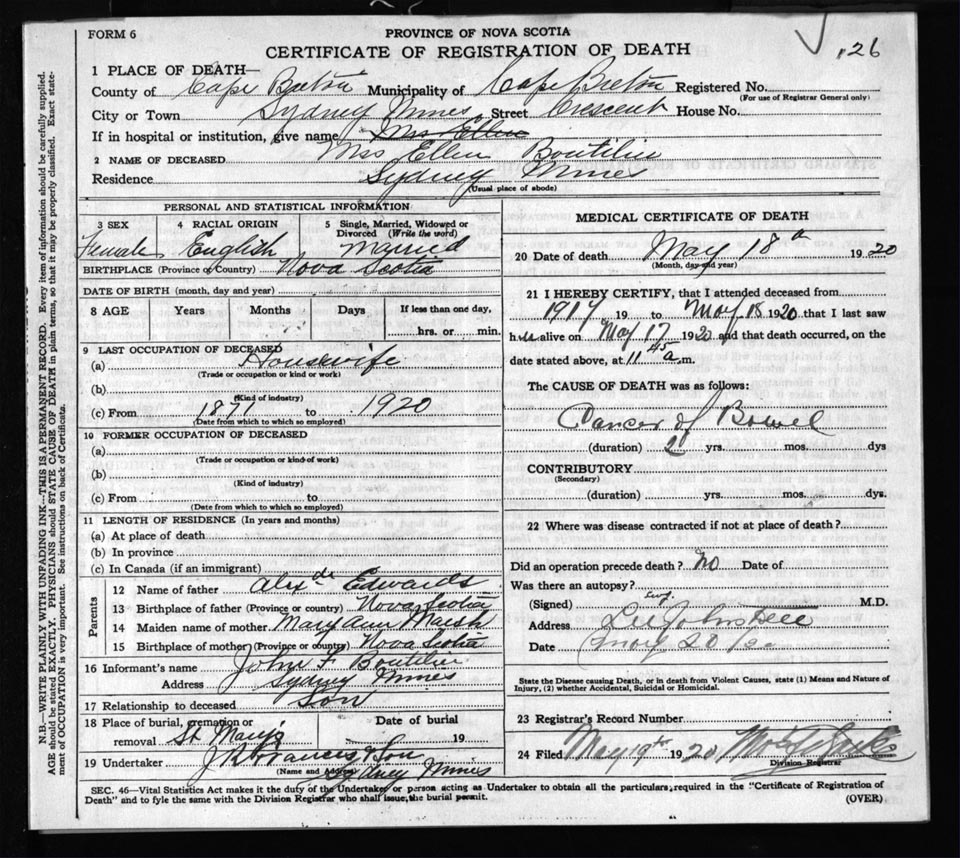 FORM 6
PROVINCE OF NOVA SCOTIA
CERTIFICATE OF REGISTRATION OF DEATH
126
1 PLACE OF DEATH—
County of Cape Breton Municipality of Cape Breton Registered No.
(For use of Registrar General only)
City or Town Sydney Mines Street Crescent House No.
If in hospital or institution, give name Mrs Ellen
2 NAME OF DECEASED Mrs Ellen Boutilier
Residence Sydney Mines
(Usual place of abode)
PERSONAL AND STATISTICAL INFORMATION
3 SEX 4 RACIAL ORIGIN 5 Single, Married, Widowed or Divorced (Write the word)
Female English Married
BIRTHPLACE (Province or Country) Nova Scotia
DATE OF BIRTH (month, day and year)
8 AGE Years Months Days If less than one day,
hrs. or min.
9 LAST OCCUPATION OF DECEASED
(a) Housewife
(Trade or occupation or kind or work)
(b)
(Kind of industry)
(c) From 1871 to 1920
(Date from which to which so employed)
10 FORMER OCCUPATION OF DECEASED
(a)
(Trade or occupation or kind of work)
(b)
(Kind of industry)
(c) From to
(Date from which to which so employed)
11 LENGTH OF RESIDENCE (In years and months)
(a) At place of death
(b) In province
(c) In Canada (if an immigrant)
Parents
12 Name of father Alexdr Edwards
13 Birthplace of father (Province or country) Nova Scotia
14 Maiden name of mother Mary Ann Marsh
15 Birthplace of mother (Province or country) Nova Scotia
16 Informant's name John F Boutilier
Address Sydney Mines
17 Relationship to deceased Son
18 Place of burial, cremation or removal St Mary's
Date of burial
19
19 Undertaker & Son
(Name and Address) Sydney Mines
MEDICAL CERTIFICATE OF DEATH
20 Date of death May 18th 1920
(Month, day and year)
21 I HEREBY CERTIFY, that I attended deceased from
1917 19 to May 18 1920 that I last saw
h alive on May 17 1920 and that death occurred, on
date stated above, at 11 45 a.m.
The CAUSE OF DEATH was as follows:
Cancer of Bowel
(duration) 2 yrs. mos. dys
CONTRIBUTORY
(Secondary)
(duration) yrs. mos. dys.
22 Where was disease contracted if not at place of death?
Did an operation precede death? No Date of
Was there an autopsy?
(Signed) M.D.
Address
Date May 20
State the Disease causing Death, or in death from Violent Causes, state (1) Means and Nature of
Injury, (2) whether Accidental, Suicidal or Homicidal.
23 Registrar's Record Number
24 Filed May 19th 1920
Division Registrar
SEC. 46—Vital Statistics Act makes it the duty of the Undertaker or person acting as Undertaker to obtain all the particulars, required in the "Certificate of Registration of
Death" and to fyle the same with the Division Registrar who shall issue, the burial permit.
(OVER)
N.B.—WRITE PLAINLY WITH UNFADING INK—THIS IS A PERMANENT RECORD. Every item of information should be carefully supplied.
AGE should be stated EXACTLY. PHYSICIANS should STATE CAUSE OF DEATH in plain terms, so that it may be properly classified. Exact state-
ment of OCCUPATION is very important. See instructions on back of Certificate.